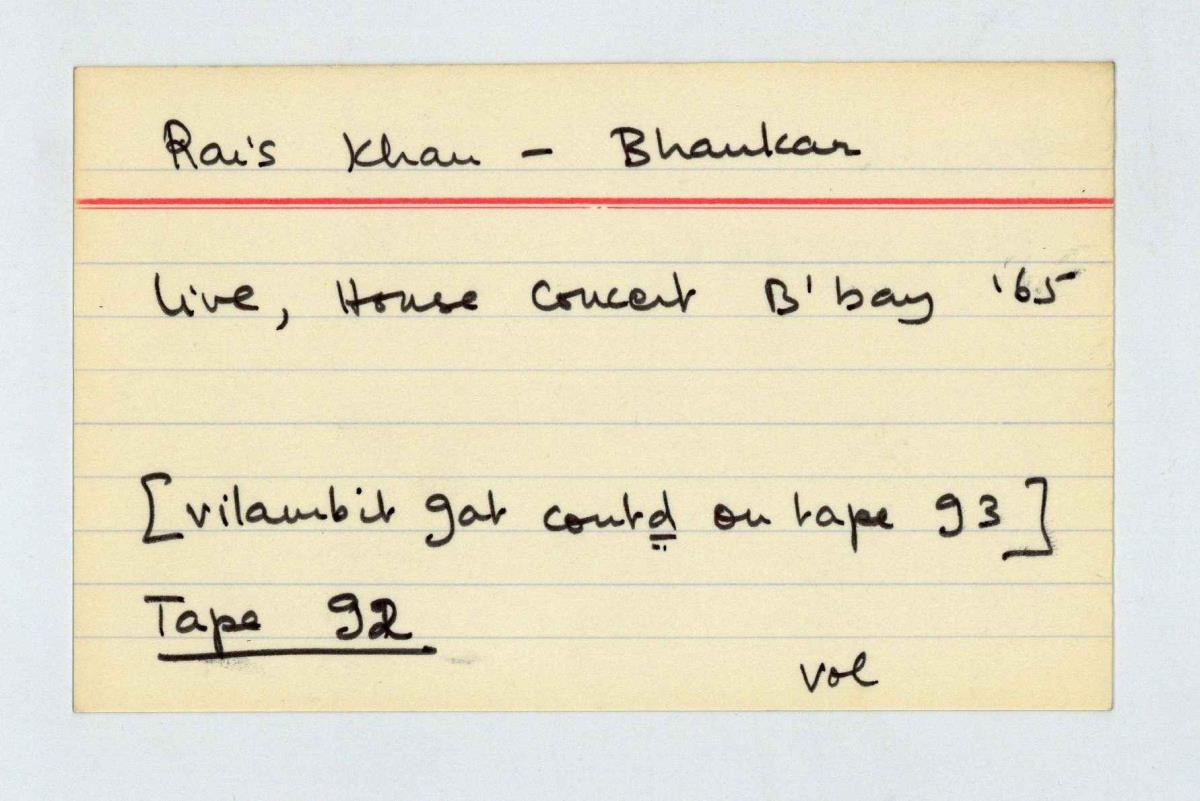 Rais Khan - Bhankar
live, House Concert B'bay '65
[vilambit gat contd on tape 93]
Tape 92
vol